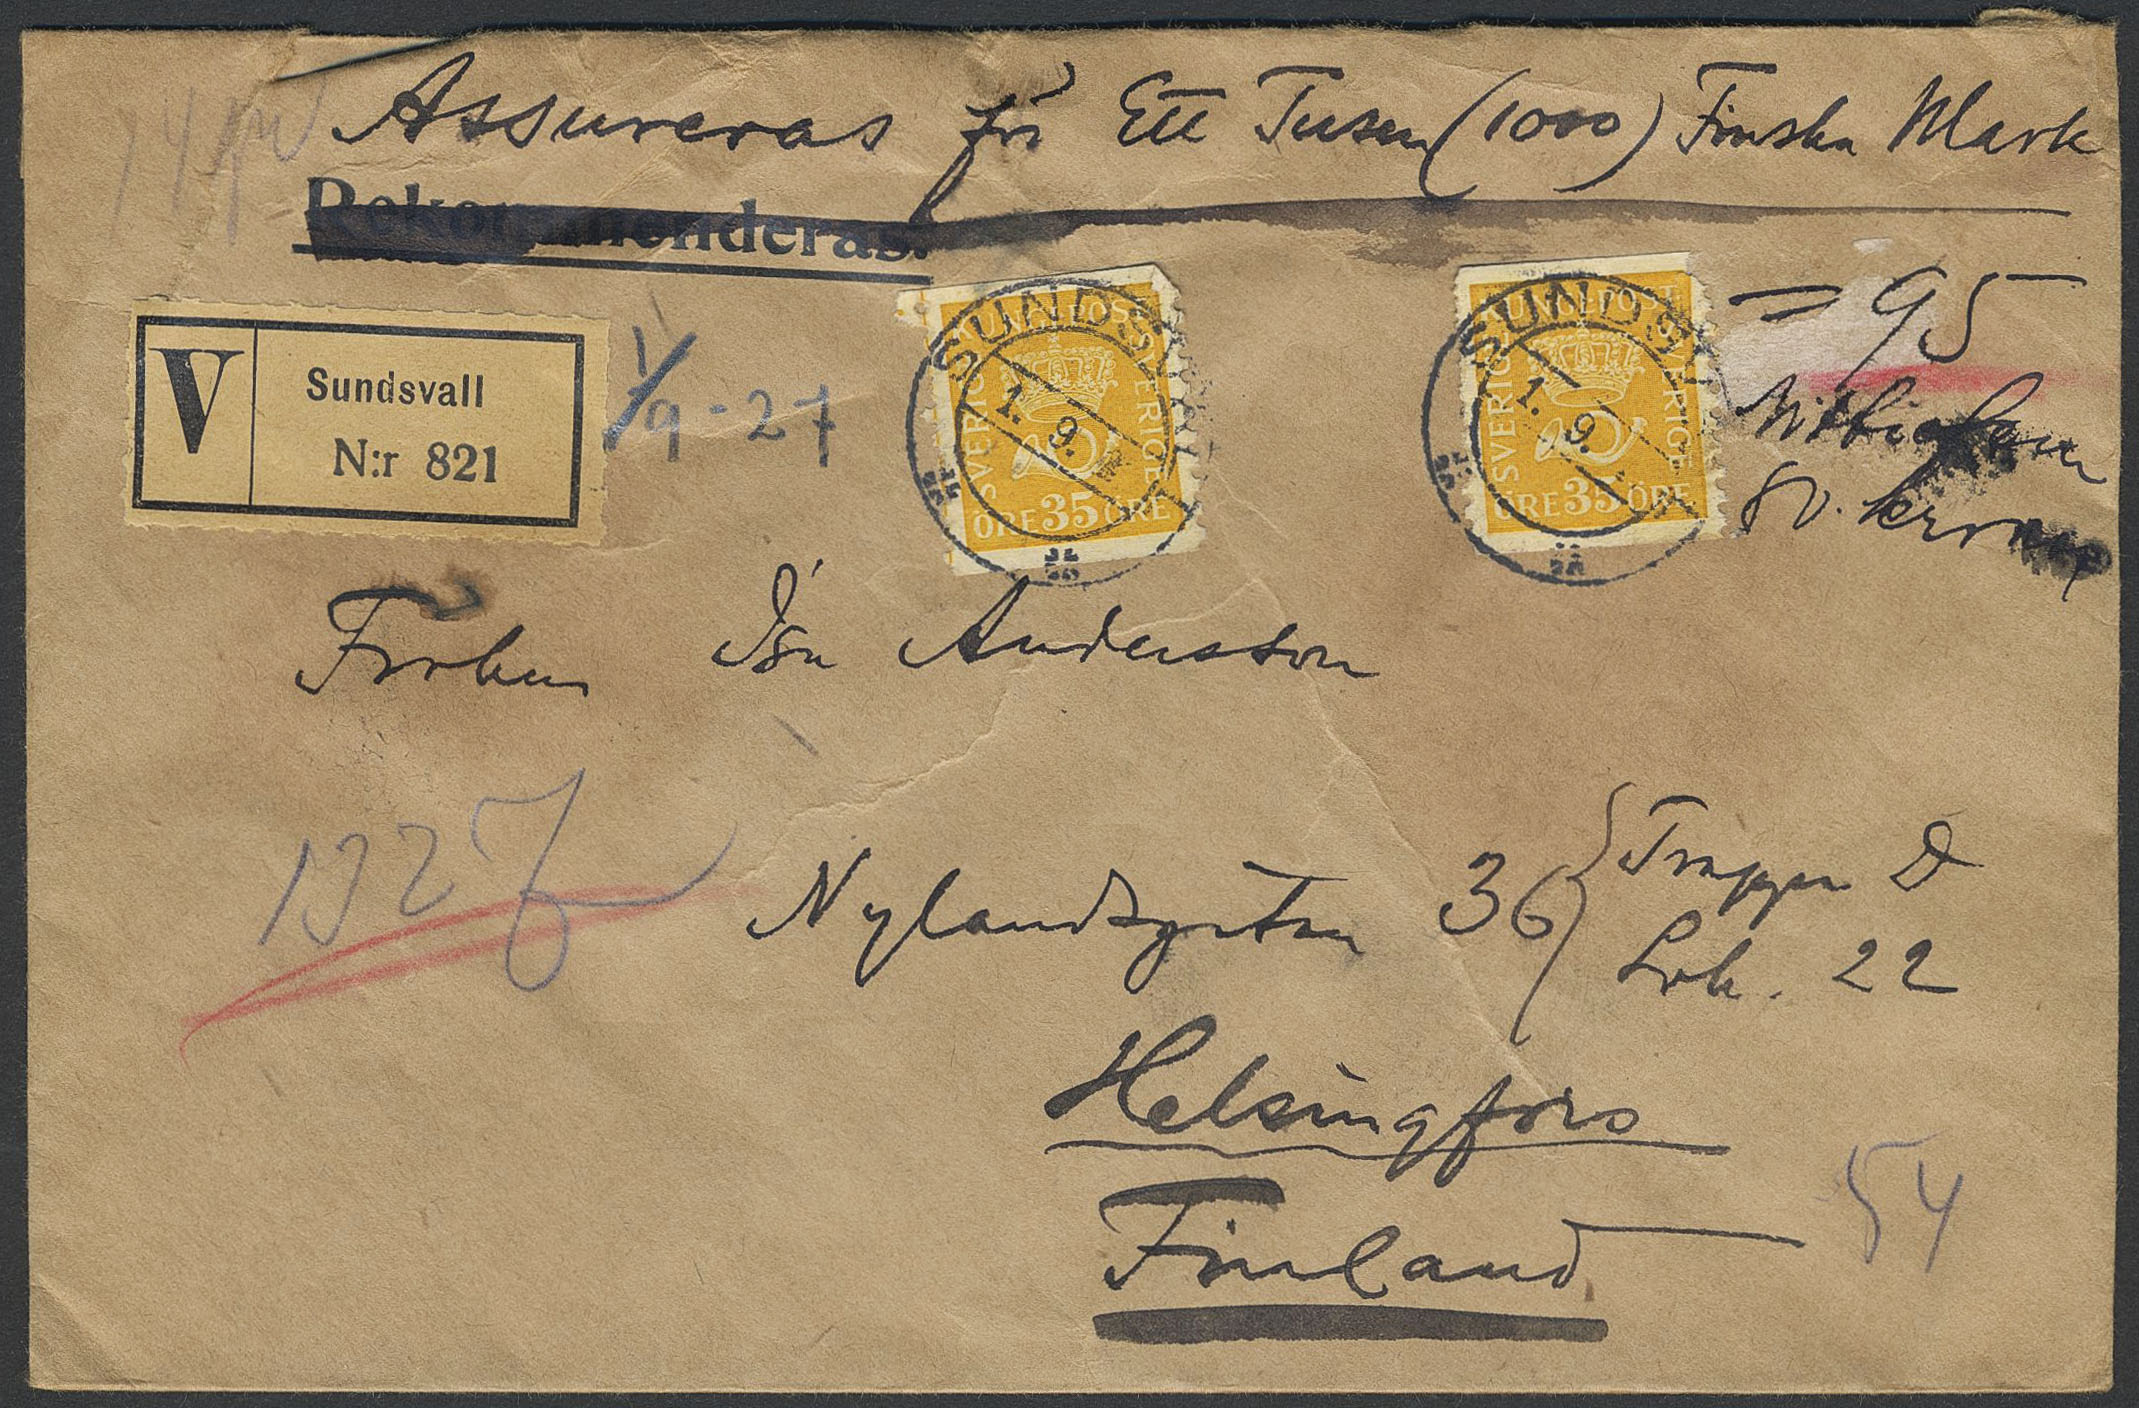 Assureras för Ett Tusen (1000) Finska Mark
Rekommenderas.
= 95
Nittiofem
sv. kronor
V Sundsvall
N:r 821
1/9 - 27
SUNDSVALL
1. 9.
KUNGL. POST
SVERIGE SVERIGE
ÖRE 35 ÖRE
SUNDSV
1. 9.
KUNGL. POST
SVERIGE SVERIGE
ÖRE 35 ÖRE
Fröken Isa Andersson
Nylandsgatan 36 Trappa D
Lok. 22
Helsingfors
Finland
54